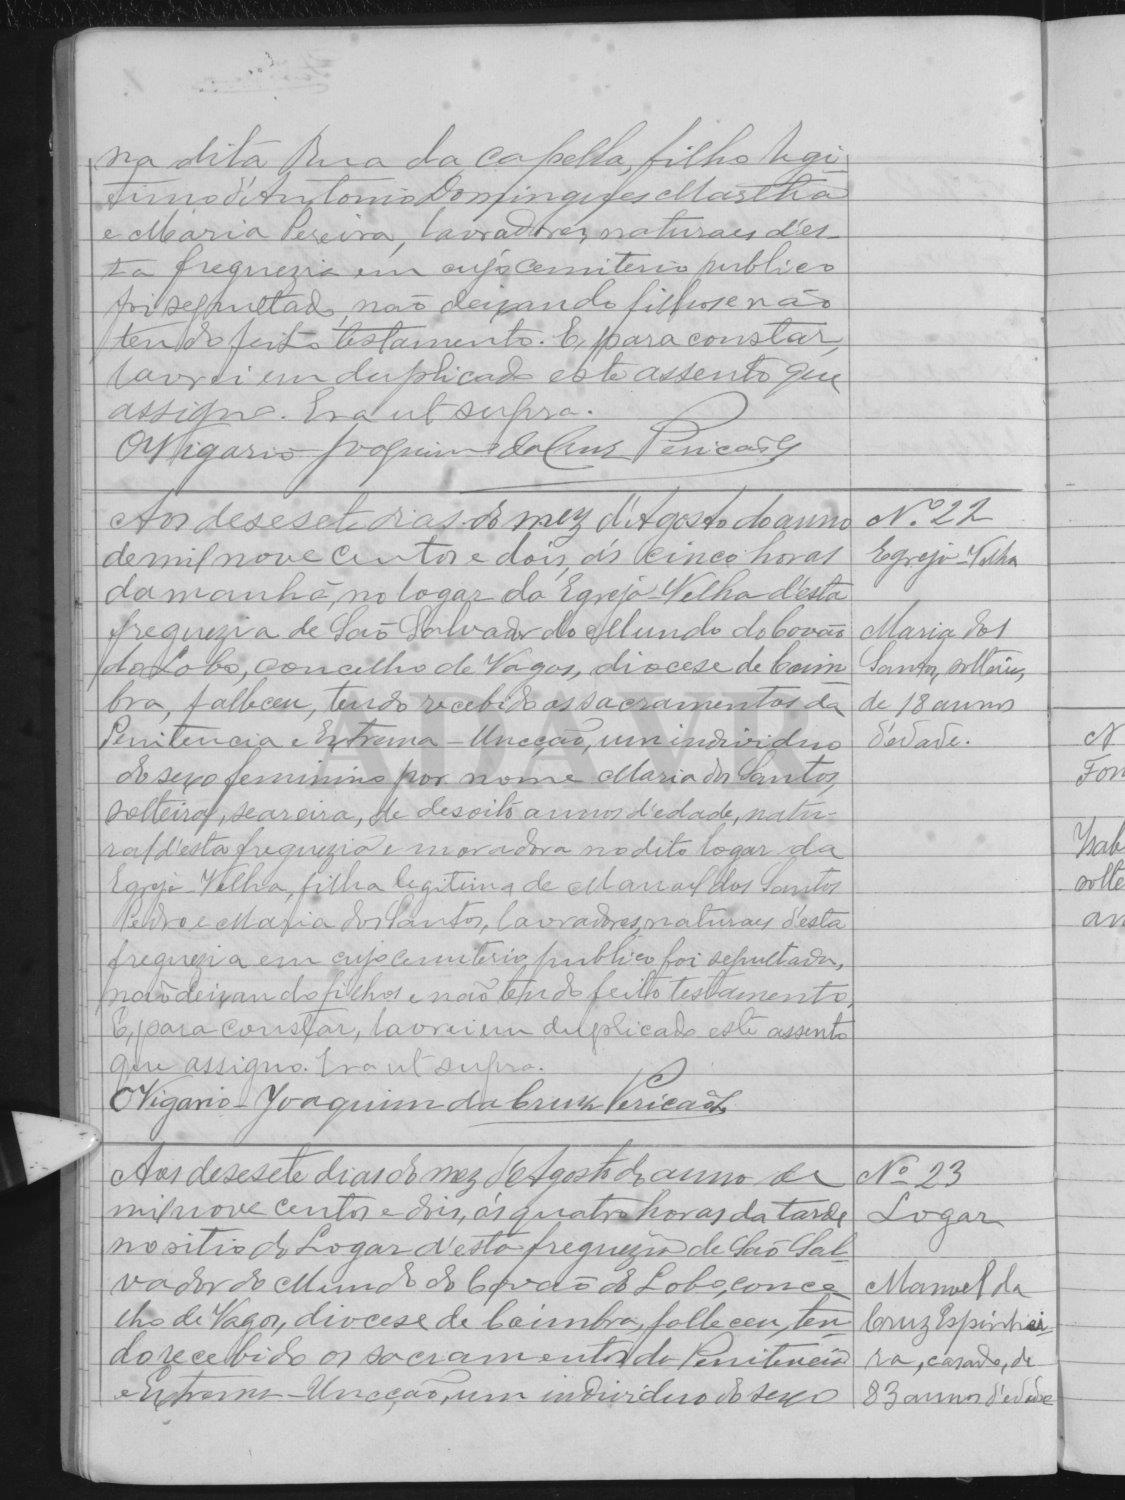 na dita Rua da Capella, filho legi-
timo d'Antonio Domingues Martha
e Maria Pereira, lavradores, naturaes d'es-
ta freguezia em cujo cemiterio publico
foi sepultado, não deixando filhos e não
tendo feito testamento. E, para constar,
lavrei em duplicado este assento que
assigno. Era ut supra.
O Vigario - Joaquim da Cruz Pericão
Aos desesete dias do mez d'Agosto do anno
de mil nove centos e dois, ás cinco horas
da manhã, no logar da Egreja-Velha d'esta
freguezia de São Salvador do Mundo do Covão
do Lobo, concelho de Vagos, diocese de Coim-
bra, falleceu, tendo recebido os sacramentos da
Penitencia e Extrema-Uncção, um individuo
do sexo feminino por nome Maria dos Santos,
solteira, seareira, de desoito annos d'edade, natu-
ral d'esta freguezia e moradora no dito logar da
Egreja-Velha, filha legitima de Manoel dos Santos
Pedro e Maria dos Santos, lavradores, naturaes d'esta
freguezia em cujo cemiterio publico foi sepultada,
não deixando filhos e não tendo feito testamento.
E, para constar, lavrei em duplicado este assento
que assigno. Era ut supra.
O Vigario - Joaquim da Cruz Pericão
Nº 22
Egreja-Velha
Maria dos
Santos, solteira,
de 18 annos
d'edade.
Aos desesete dias do mez d'Agosto do anno de
mil nove centos e dois, ás quatro horas da tarde
no sitio do Logar d'esta freguezia de São Sal-
vador do Mundo do Covão do Lobo, conce-
lho de Vagos, diocese de Coimbra, falleceu, ten-
do recebido os sacramentos da Penitencia
e Extrema-Uncção, um individuo do sexo
Nº 23
Logar
Manoel da
Cruz Espinhei-
ra, casado, de
83 annos d'edade
N
Fon
Isab
solte
an
ADAVR